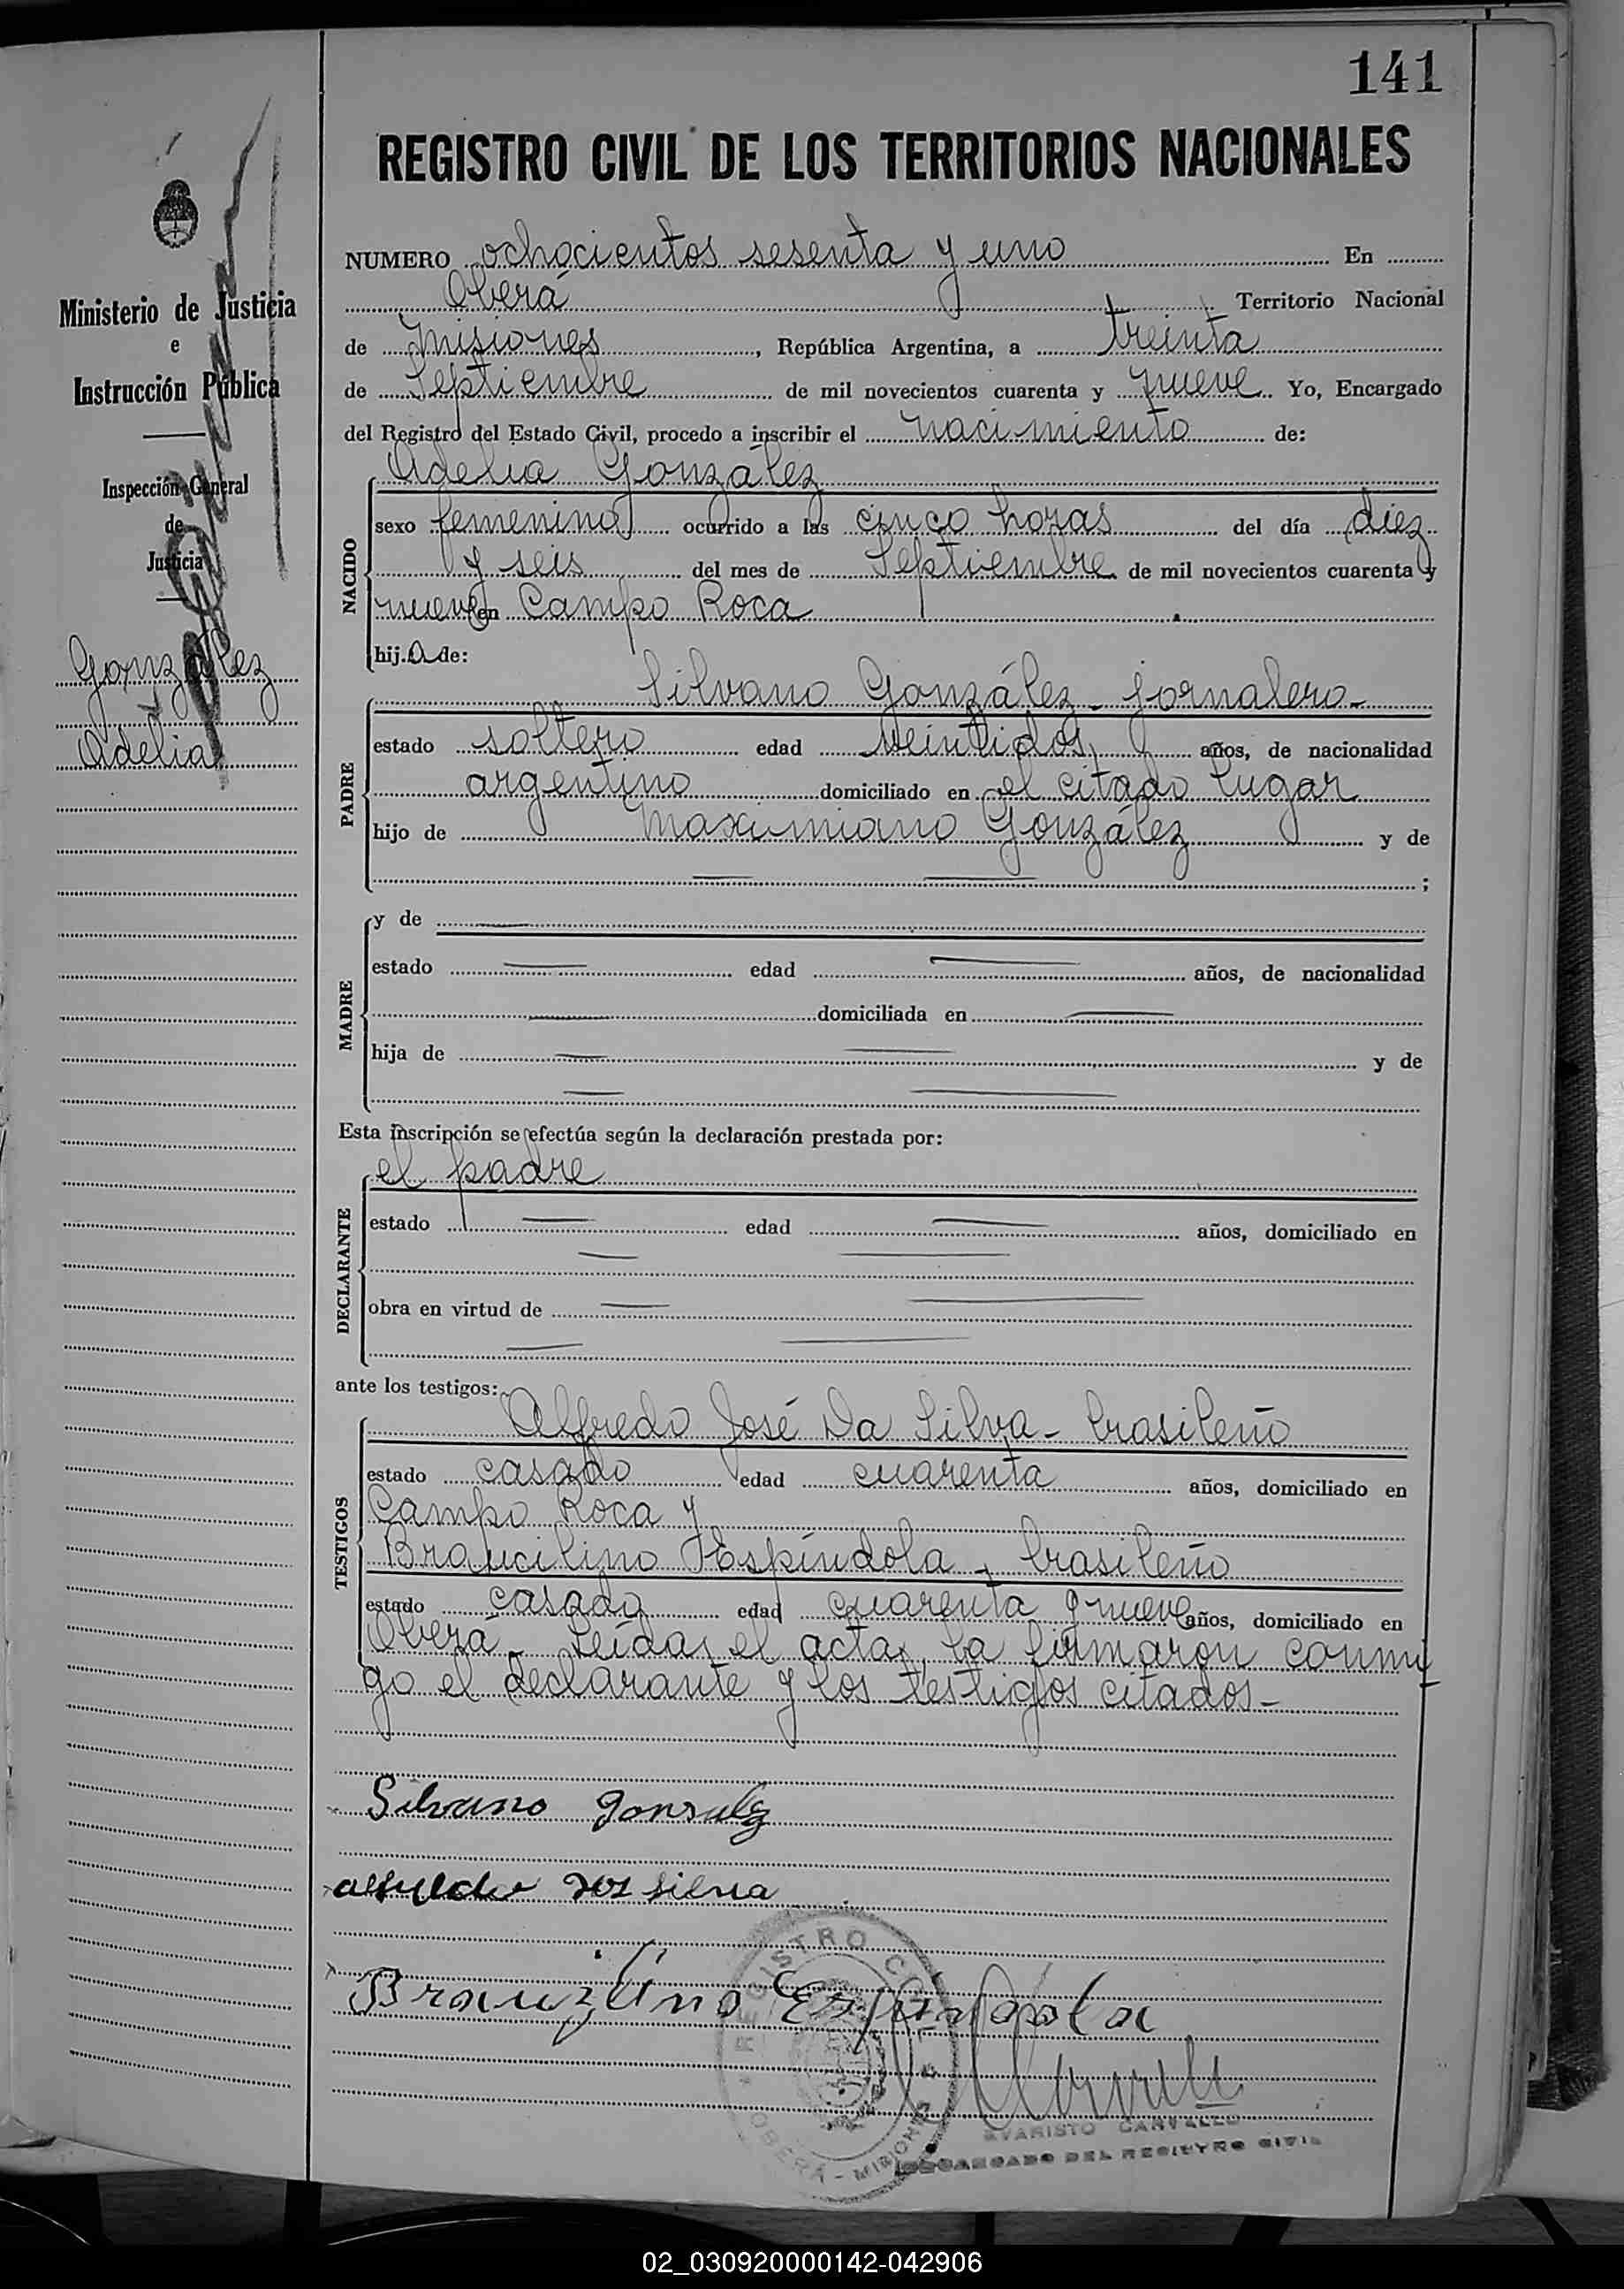 141
REGISTRO CIVIL DE LOS TERRITORIOS NACIONALES
Ministerio de Justicia
e
Instrucción Pública
Inspección General
de
Justicia
González
Adelia
NUMERO ochocientos sesenta y uno En
Oberá Territorio Nacional
de Misiones, República Argentina, a treinta
de Septiembre de mil novecientos cuarenta y nueve. Yo, Encargado
del Registro del Estado Civil, procedo a inscribir el nacimiento de:
NACIDO
Adelia González
sexo femenino ocurrido a las cinco horas del día diez
y seis del mes de Septiembre de mil novecientos cuarenta y
nueve en Campo Roca
hija de:
PADRE
Silvano González - jornalero -
estado soltero edad veintidos años, de nacionalidad
argentino domiciliado en el citado lugar
hijo de Maximiano González y de
;
MADRE
y de
estado edad años, de nacionalidad
domiciliada en
hija de y de
Esta inscripción se efectúa según la declaración prestada por:
DECLARANTE
el padre
estado edad años, domiciliado en
obra en virtud de
ante los testigos:
TESTIGOS
Alfredo José Da Silva - brasileño
estado casado edad cuarenta años, domiciliado en
Campo Roca y
Braucilino Espíndola - brasileño
estado casado edad cuarenta y nueve años, domiciliado en
Oberá - Leída el acta, la firmaron conmi
go el declarante y los testigos citados -
Silvano Gonsalez
silva
Brauzilino Espindola
REGISTRO CIVIL
OBERÁ - MISIONES
EVARISTO CARVALLO
ENCARGADO DEL REGISTRO CIVIL
02_030920000142-042906